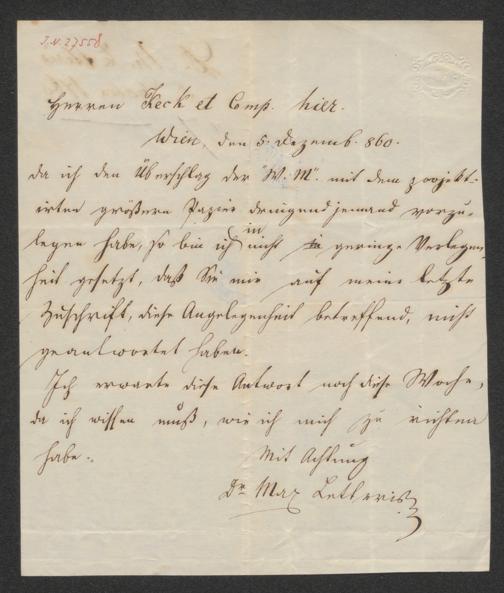 I.N. 27558
Herren Keck et Comp. hier.
Wien, den 5. Dezemb. 860.
da ich den Überschlag der "W. M". mit dem projekt-
irten größern Papier dringend jemand vorzu-
legen habe, so bin ich nicht in geringe Verlegen-
heit gesetzt, daß Sie mir auf meine letzte
Zuschrift, diese Angelegenheit betreffend, nicht
geantwortet haben.
Ich erwarte diese Antwort noch diese Woche,
da ich wissen muß, wie ich mich zu richten
habe.
Mit Achtung
Dr Max Letteris